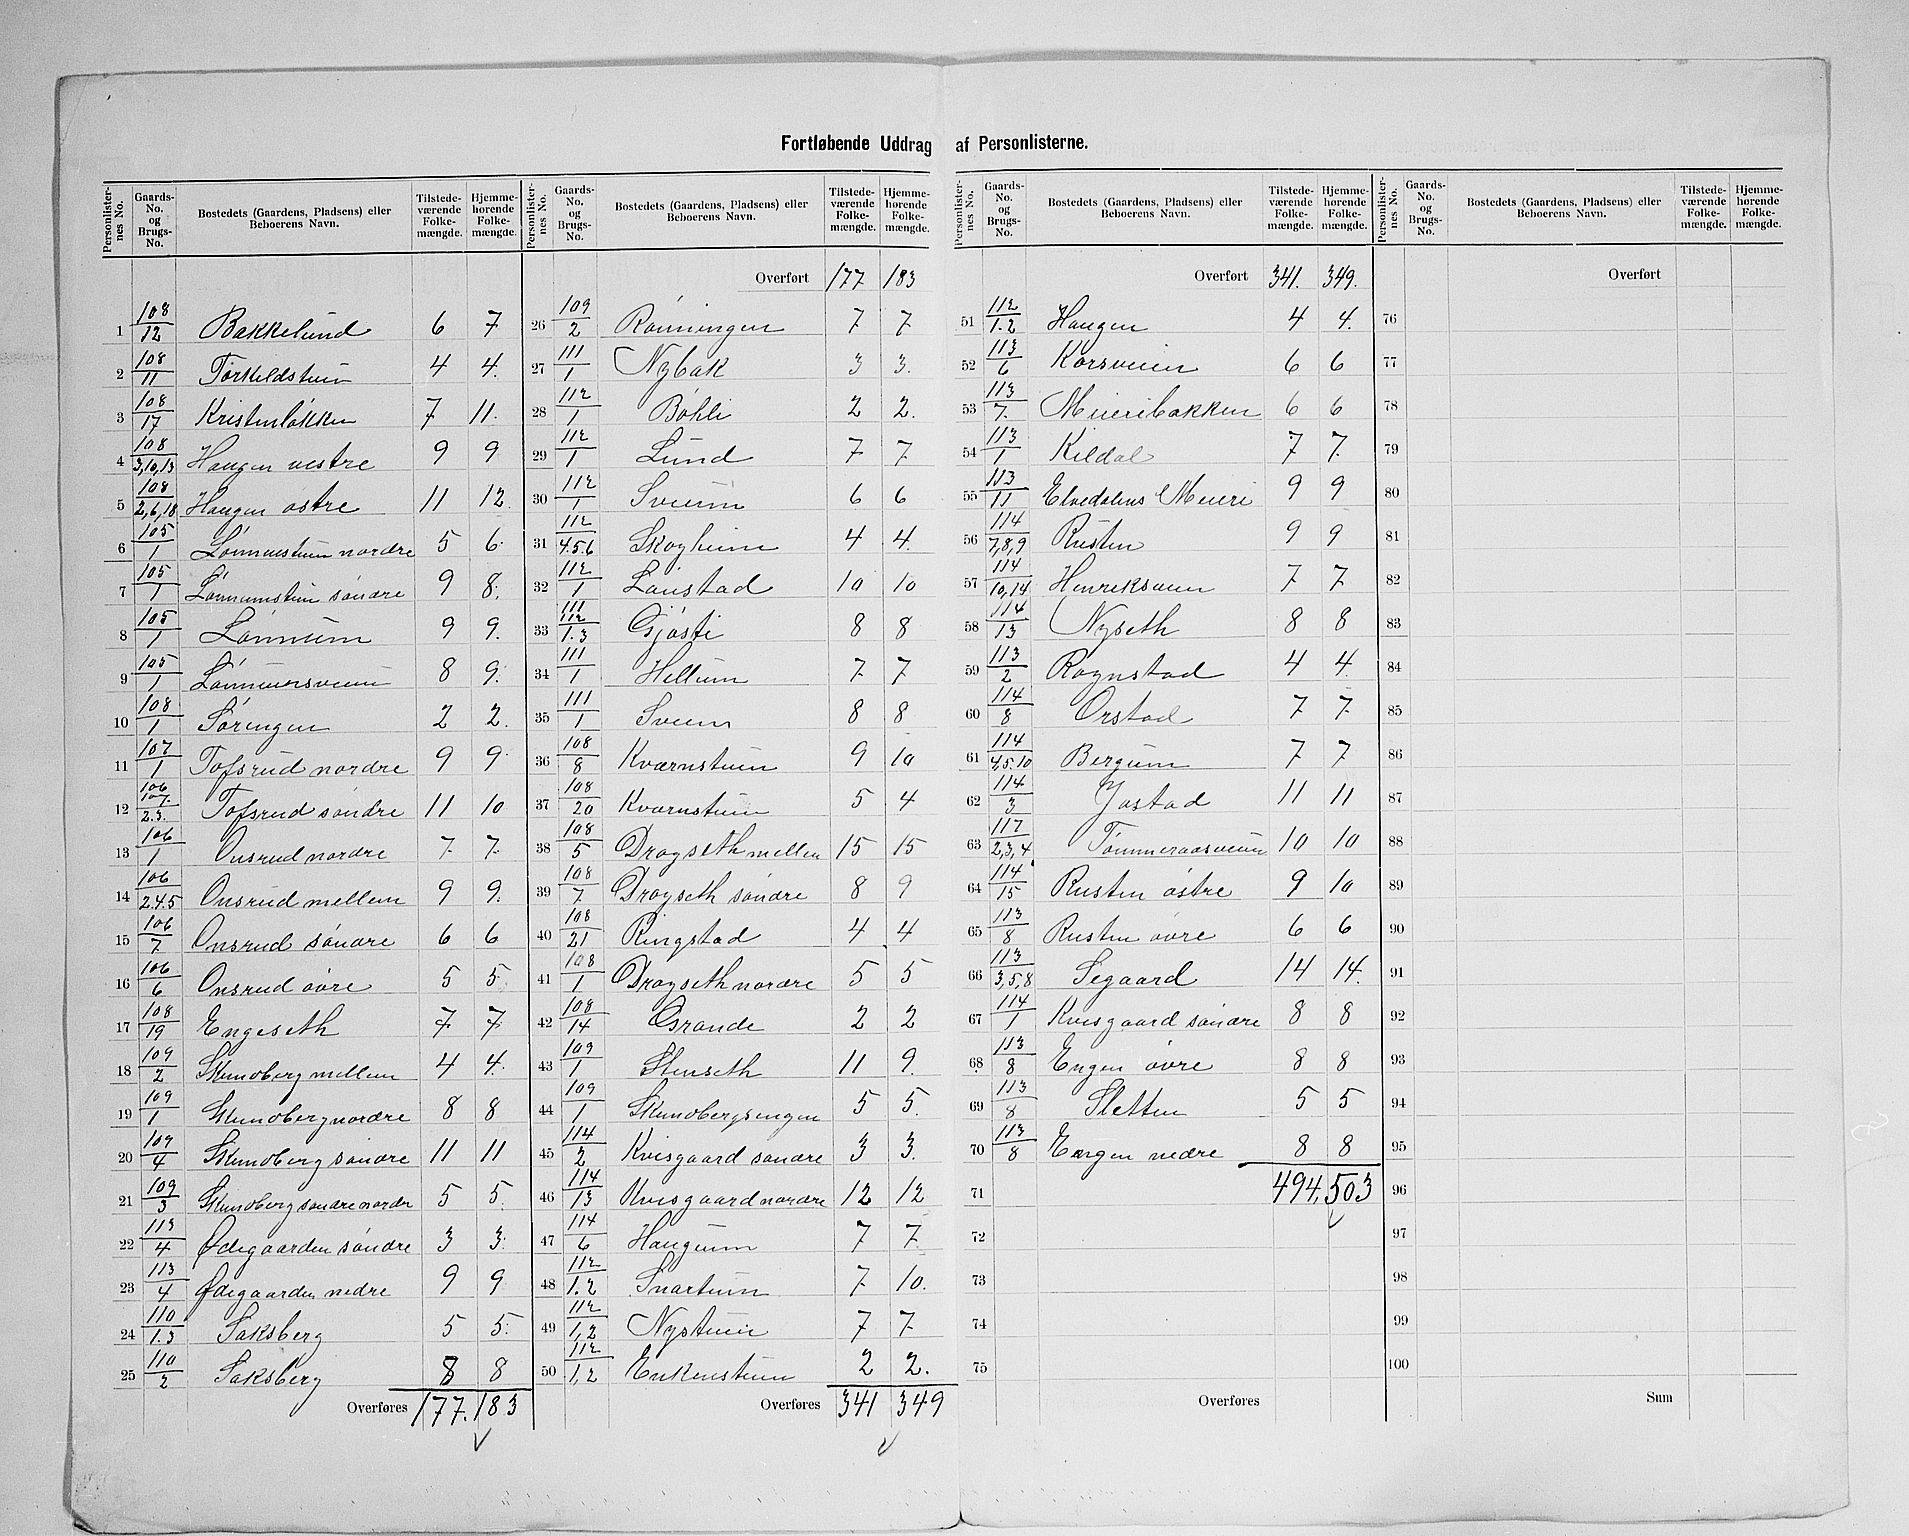 Fortløbende Uddrag af Personlisterne.
Personlister-nes No. | Gaards-No. og Brugs-No. | Bostedets (Gaardens, Pladsens) eller Beboerens Navn. | Tilstede-værende Folke-mængde. | Hjemme-hørende Folke-mængde.
1 108/12 Bakkelund 6 7
2 108/11 Torkildstuen 4 4.
3 108/17 Kristenløkken 7 11.
4 108/3,10,13 Haugen vestre 9 9
5 108/2,6,18 Haugen østre 11 12.
6 105/1 Lønnumstuen nordre 5 6.
7 105/1 Lønnumstuen søndre 9 8.
8 105/1 Lønnum 9 9.
9 105/1 Lønnumsveien 8 9.
10 108/1 Sørengen 2 2.
11 107/1 Tofsrud nordre 9 9.
12 106 107./2.3. Tofsrud søndre 11 10
13 106/1 Onsrud nordre 7 7.
14 106/2.4.5 Onsrud mellem 9 9.
15 106/7 Onsrud søndre 6 6
16 106/6 Onsrud øvre 5 5.
17 108/19 Engeseth 7 7
18 109/2 Skundberg mellem 4 4.
19 109/1 Skundberg nordre 8 8
20 109/4 Skundberg søndre 11 11
21 109/3 Skundberg søndre nordre 5 5.
22 113/4 Ødegaarden søndre 3 3.
23 113/4 Ødegaarden nedre 9 9
24 110/1.3 Saksberg 5 5.
25 110/2 Saksberg 8 8
Overføres 177. 183
Personlister-nes No. | Gaards-No. og Brugs-No. | Bostedets (Gaardens, Pladsens) eller Beboerens Navn. | Tilstede-værende Folke-mængde. | Hjemme-hørende Folke-mængde.
Overført 177 183
26 109/2 Rønningen 7 7
27 111/1 Nybak 3 3.
28 112/1 Bøhli 2 2.
29 112/1 Lund 7 7.
30 112/1 Sveum 6 6
31 112/4.5.6 Skogheim 4 4.
32 112/1 Lønstad 10 10
33 111 112/1.3 Gjøsti 8 8
34 111/1 Hellum 7 7
35 111/1 Sveen 8 8
36 108/8 Kværnstuen 9 10
37 108/20 Kværnstuen 5 4
38 108/5 Drogseth mellem 15 15
39 108/7 Drogseth søndre 8 9
40 108/21 Ringstad 4 4
41 108/1 Drogseth nordre 5 5
42 108/14 Grande 2 2
43 109/1 Stenseth 11 9.
44 109/1 Skundbergsengen 5 5.
45 114/2 Kvisgaard søndre 3 3.
46 114/13 Kvisgaard nordre 12 12
47 114/6 Haugum 7 7.
48 112/1.2 Snartum 7 10.
49 112/1,2 Nystuen 7 7.
50 112/1,2 Enkenstuen 2 2.
Overføres 341 349
Personlister-nes No. | Gaards-No. og Brugs-No. | Bostedets (Gaardens, Pladsens) eller Beboerens Navn. | Tilstede-værende Folke-mængde. | Hjemme-hørende Folke-mængde.
Overført 341. 349.
51 112/1.2 Haugen 4 4.
52 113/6 Korsveien 6 6
53 113/7. Meieribakken 6 6
54 113/1 Kildal 7 7.
55 113/11 Elvedalens Meieri 9 9
56 114/7,8,9 Rusten 9 9
57 114/10,14 Henriksveen 7 7
58 114/13 Nyseth 8 8
59 113/2 Rognstad 4 4.
60 114/8 Orstad 7 7.
61 114/4,5.10 Bergum 7 7
62 114/3 Jøstad 11 11
63 117/2,3,4 Tømmeraasveien 10 10
64 114/15 Rusten østre 9 10
65 113/8 Rusten øvre 6 6
66 113/3,5,8 Segaard 14 14.
67 114/1 Kvisgaard søndre 8 8
68 113/8 Engen øvre 8 8
69 113/8 Sletten 5 5
70 113/8 Engen nedre 8 8
71 494, 503
72
73
74
75
Overføres
Personlister-nes No. | Gaards-No. og Brugs-No. | Bostedets (Gaardens, Pladsens) eller Beboerens Navn. | Tilstede-værende Folke-mængde. | Hjemme-hørende Folke-mængde.
Overført
76
77
78
79
80
81
82
83
84
85
86
87
88
89
90
91
92
93
94
95
96
97
98
99
100
Sum